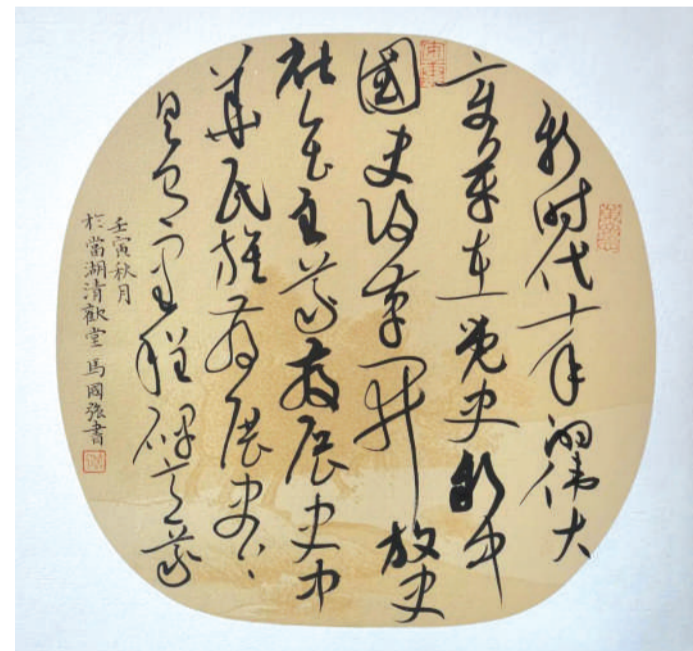 新时代十年的伟大
变革在党史新中
國史改革开放史
社会主义发展史中
華民族发展史上
具有里程碑意义
壬寅秋月
於當湖清歡堂 馬國書